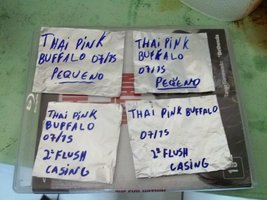 THAI PINK
BUFFALO 07/75
PEQUENO
THAI PINK
BUFFALO
07/75
PEQUENO
THAI PINK
BUFFALO
07/75
2º FLUSH
CASING
THAI PINK BUFFALO
07/75
2º FLUSH
CASING